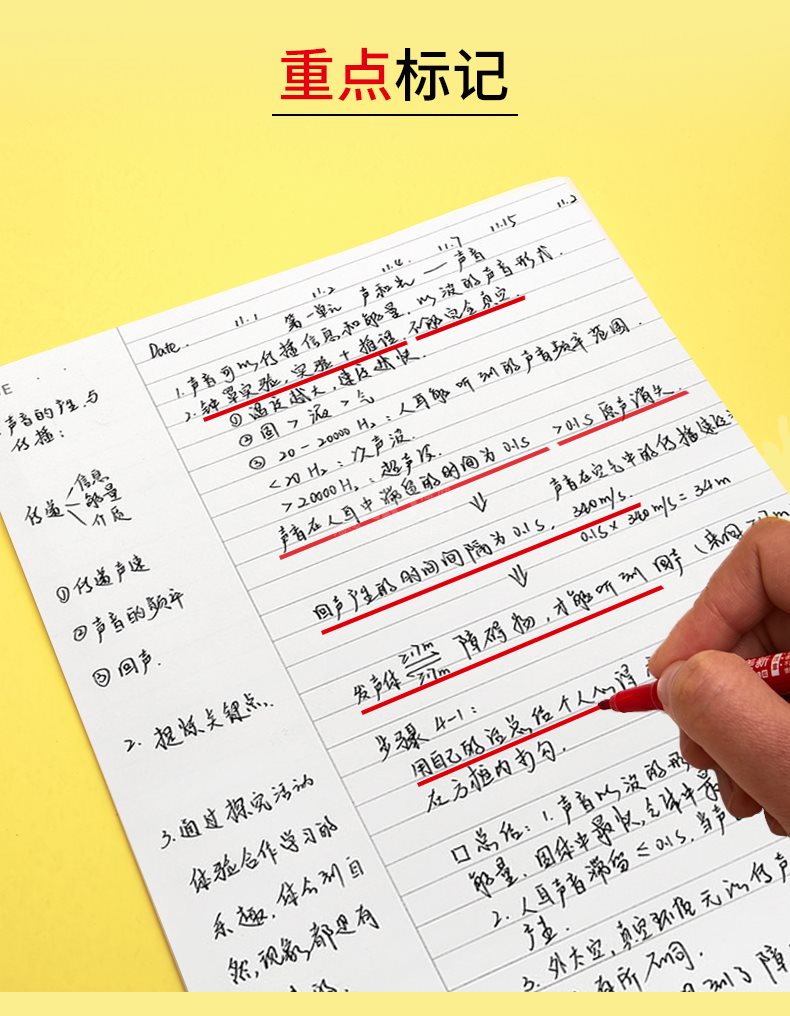 重点标记
11.1 11.2 11.4 11.7 11.15 11.2
第一单元 声和光 — 声音
Date.
1. 声音可以传播信息和能量，以波的声音形式.
2. 钟罩实验，实验+推理，不能完全真空.
① 温度越大，速度越快.
② 固 > 液 > 气
③ 20-20000Hz：人耳能听到的声音频率范围.
<20Hz：次声波.
>20000Hz：超声波.
声音在人耳中滞留的时间为0.1s >0.1s 原声消失.
声音在空气中的传播速度
340m/s.
回声产生的时间间隔为0.1s, 0.1s×340m/s=34m
发声体 ≥17m ≥17m 障碍物，才能听到回声（来回
步骤4-1：
用自己的话总结个人心得
在方框内
口总结：1. 声音以波的形
能量，固体中最快，气体中最
2. 人耳声音滞留≤0.1s，当声
产生.
3. 外太空，真空环境无法传声
有所不同.
到了障
E
声音的产生与
传播：
传递 信息
能量
介质
① 传递声速
② 声音的频率
③ 回声.
2. 提炼关键点.
3. 通过探究活动
体验合作学习的
乐趣，体会到自
然，现象都是有